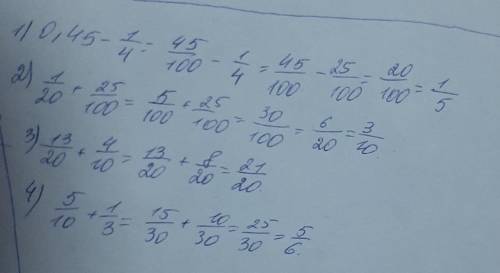 1) 0,45 - 1/4 = 45/100 - 1/4 = 45/100 - 25/100 = 20/100 = 1/5
2) 1/20 + 25/100 = 5/100 + 25/100 = 30/100 = 6/20 = 3/10.
3) 13/20 + 4/10 = 13/20 + 8/20 = 21/20.
4) 5/10 + 1/3 = 15/30 + 10/30 = 25/30 = 5/6.